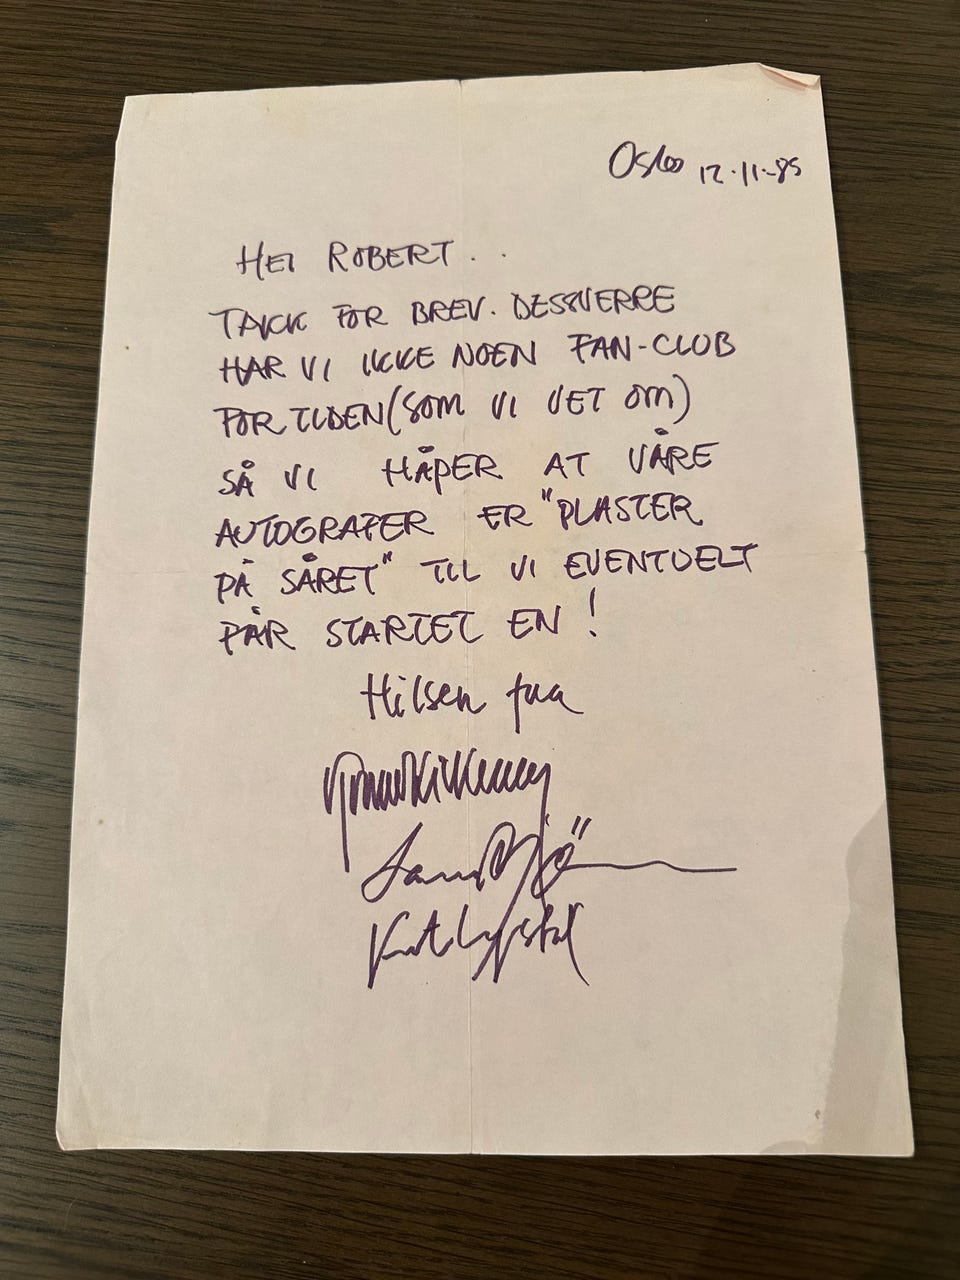 Oslo 12.11.-85
HEI ROBERT . .
TAKK FOR BREV. DESSVERRE
HAR VI IKKE NOEN FAN-CLUB
FOR TIDEN (SOM VI VET OM)
SÅ VI HÅPER AT VÅRE
AUTOGRAFER ER "PLASTER
PÅ SÅRET" TIL VI EVENTUELT
FÅR STARTET EN !
Hilsen fra